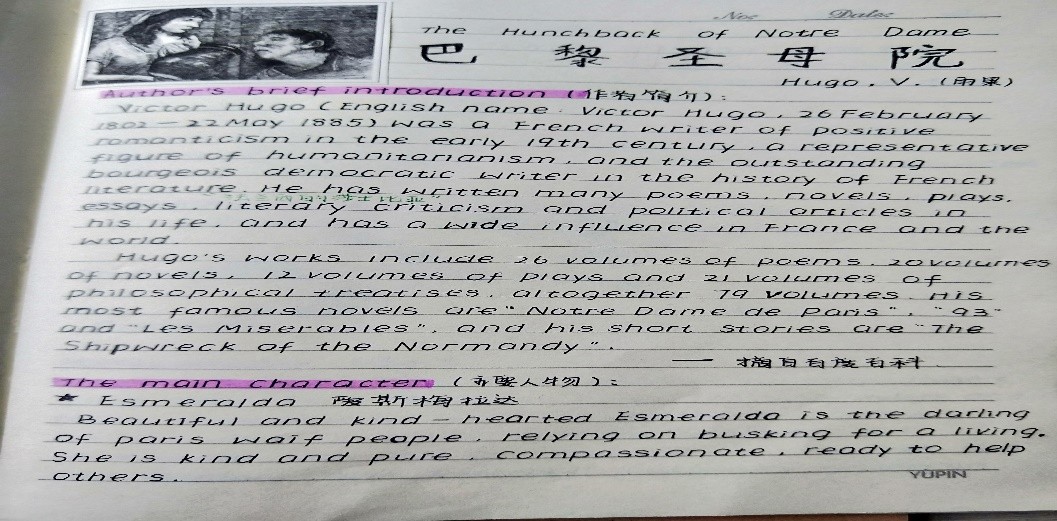 No: Date:
The Hunchback of Notre Dame
巴黎圣母院
Hugo. V. (雨果)
Author's brief introduction (作者简介):
Victor Hugo (English name: Victor Hugo, 26 February
1802 — 22 May 1885) was a French writer of positive
romanticism in the early 19th century, a representative
figure of humanitarianism, and the outstanding
bourgeois democratic writer in the history of French
literature. He has written many poems, novels, plays,
essays, literary criticism and political articles in
his life, and has a wide influence in France and the
world.
Hugo's works include 26 volumes of poems, 20 volumes
of novels, 12 volumes of plays and 21 volumes of
philosophical treatises, altogether 79 volumes. His
most famous novels are "Notre Dame de Paris", "93"
and "Les Miserables", and his short stories are "The
Shipwreck of the Normandy".
—— 摘自百度百科
The main character (主要人物):
★ Esmeralda 斯梅拉达
Beautiful and kind-hearted Esmeralda is the darling
of paris waif people, relying on busking for a living.
She is kind and pure, compassionate, ready to help
others.
YUPIN